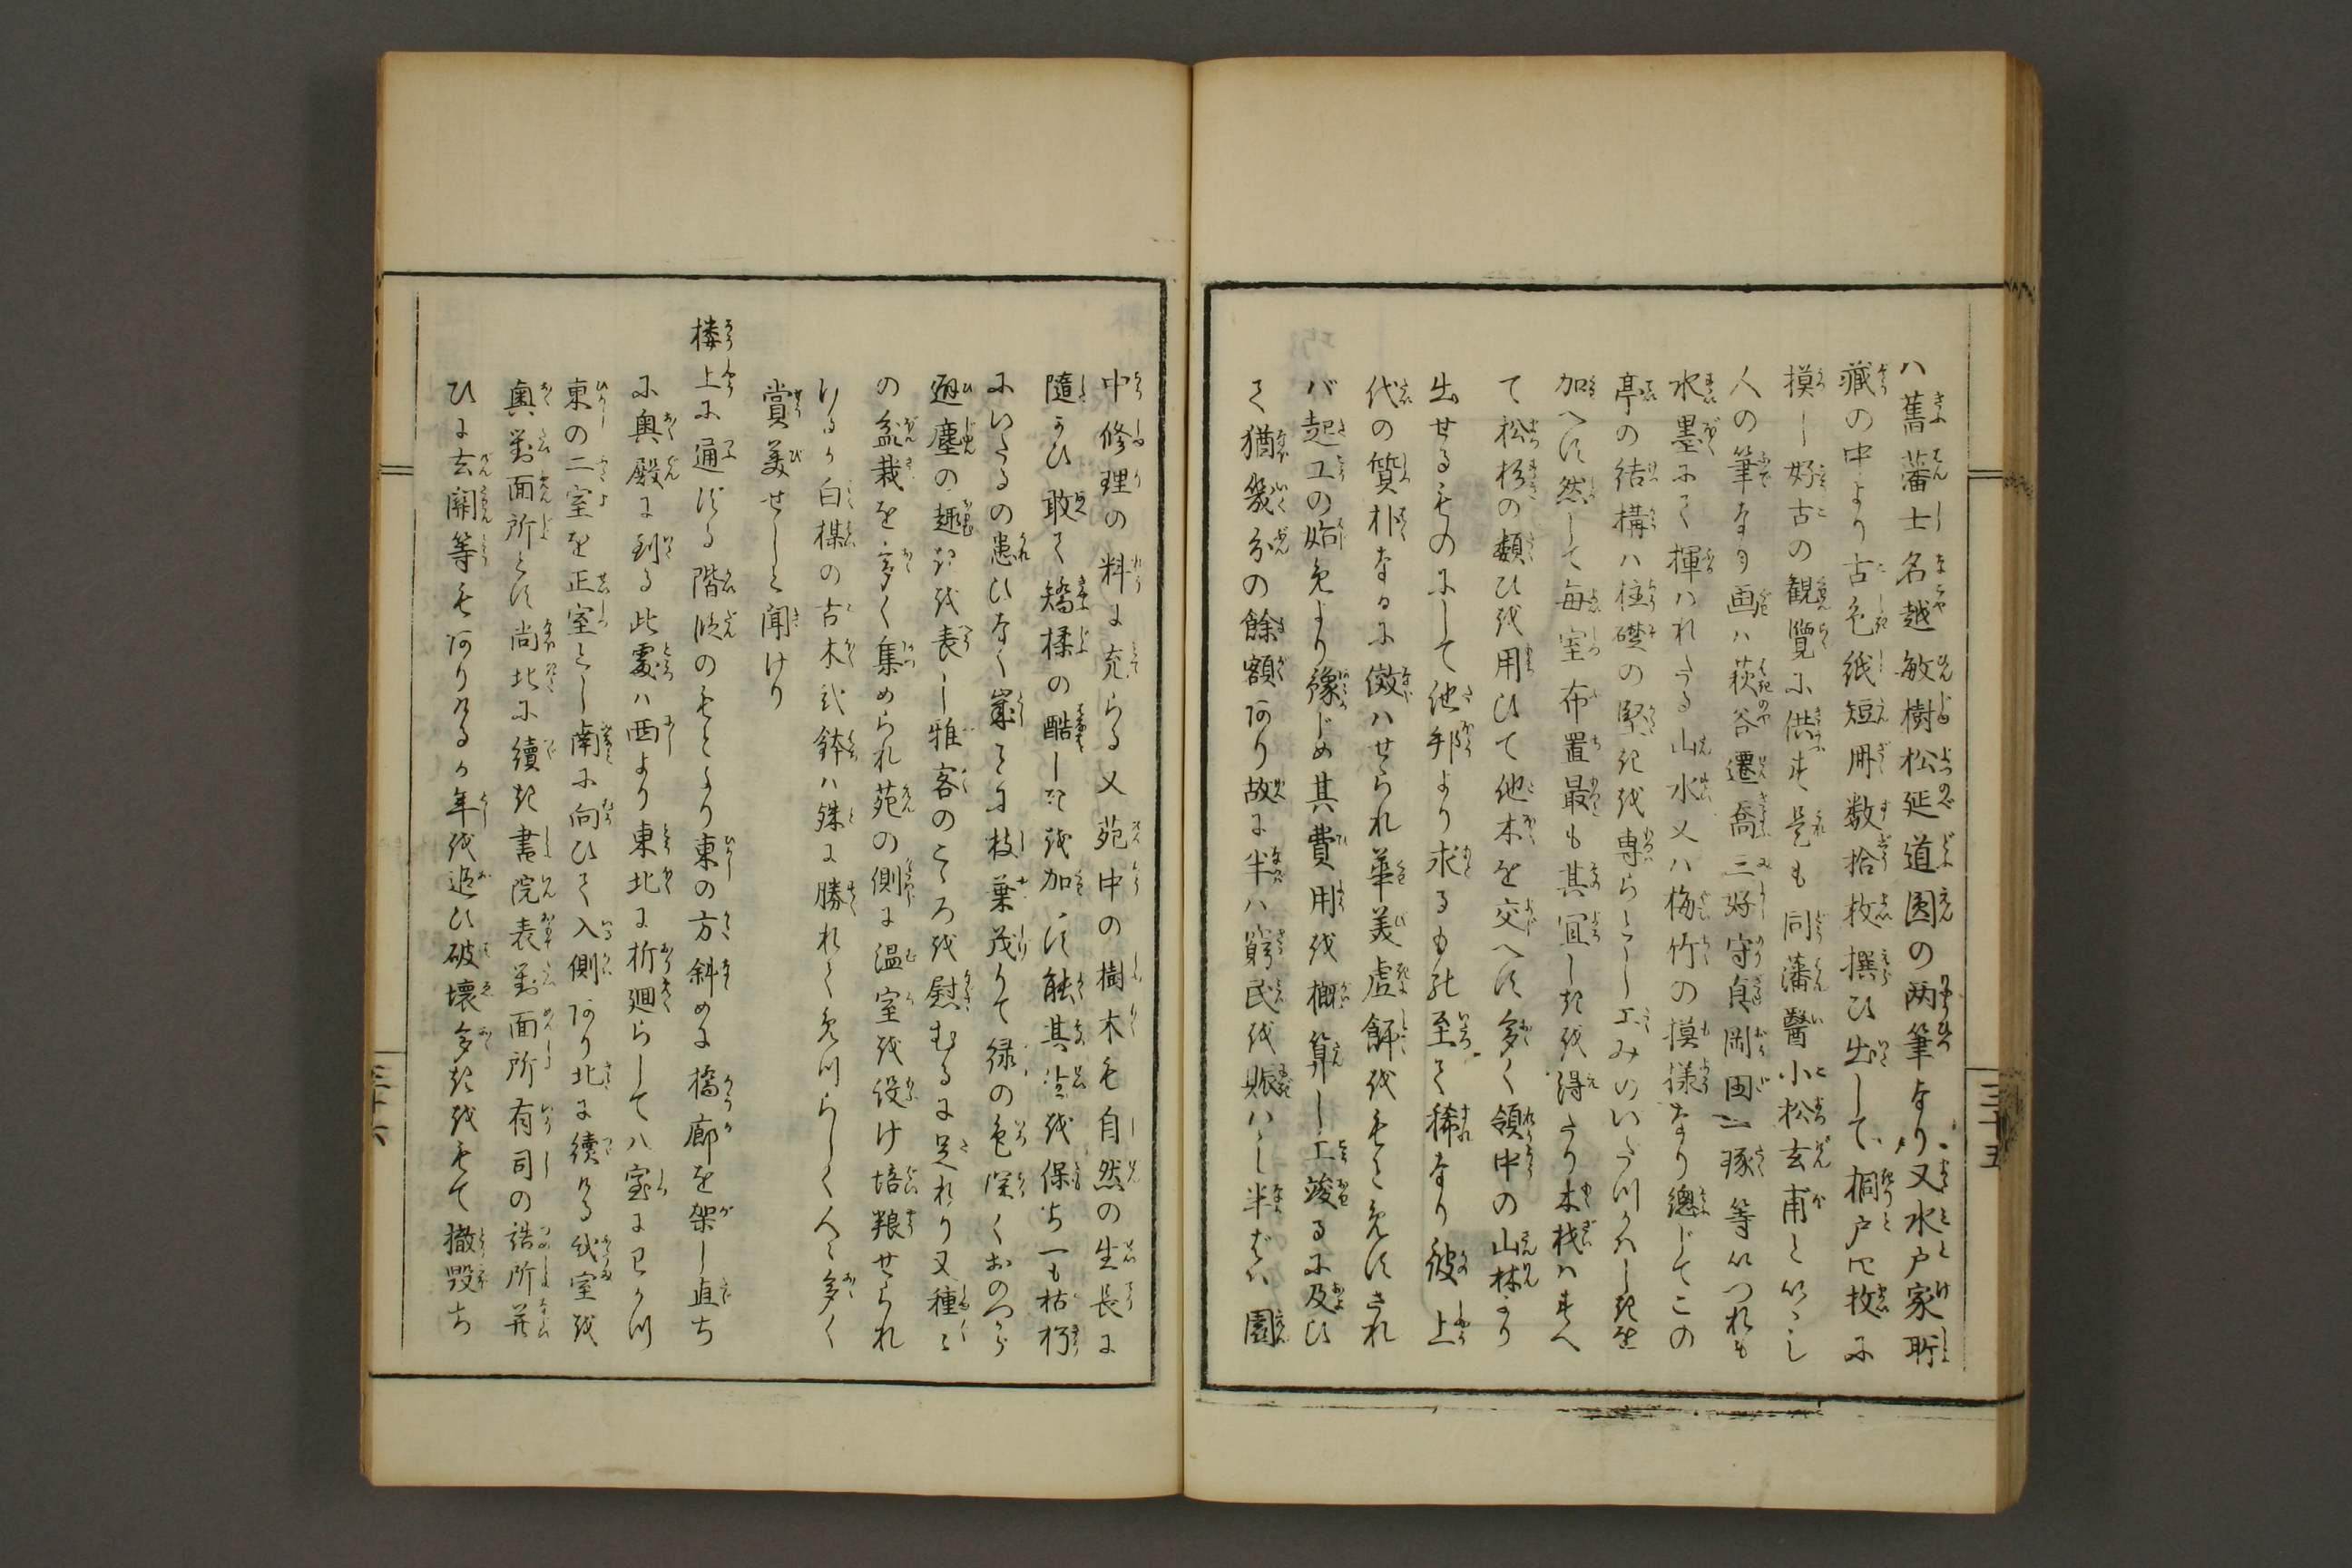 ハ舊藩士名越敏樹松延道圓の両筆なり又水戸家所
藏の中より古色紙短冊数拾枚撰ひ出して桐戸四枚に
摸し好古の観覧に供す是も同藩醫小松玄甫といゝし
人の筆なり画ハ萩谷遷喬三好守真岡田一琢等いつれも
水墨にて揮ハれたる山水又ハ梅竹の摸様なり總じてこの
亭の結構ハ柱礎の堅きを専らとし工みのいたつかハしきを
加へす然して毎室布置最も其宜しきを得たり木材ハすへ
て松杉の類ひを用ひて他木を交へす多く領中の山林より
出せるものにして他邦より求るも能至て稀なり彼上
代の質朴なるに倣ハせられ華美虚飾をもとめすされ
バ起工の始めより豫じめ其費用を概算し工竣るに及ひ
て猶幾分の餘額あり故に半ハ窮民を賑ハし半ばハ園
三十五
中修理の料に充らる又苑中の樹木も自然の生長に
隨ひ敢て矯揉の酷しきを加へす能其性を保ち一も枯朽
にいたるの患ひなく歳ことに枝葉茂りて緑の色深くおのつから
避塵の趣きを表し雅客のこゝろを慰むるに足れり又種々
の盆栽を多く集められ苑の側に温室を設け培粮せられ
けるか白楳の古木弐鉢ハ殊に勝れてめつらしく人々多く
賞美せしと聞けり
楼上に通する階段のもとより東の方斜めに橋廊を架し直ち
に奥殿に到る此處ハ西より東北に折廻らして八室にわかつ
東の二室を正室とし南に向ひて入側あり北に續ける弐室を
奥對面所とす尚北に續き書院表對面所有司の詰所并
ひに玄関等もありけるか年を追ひ破壊多きをもて撤毀ち
三十六